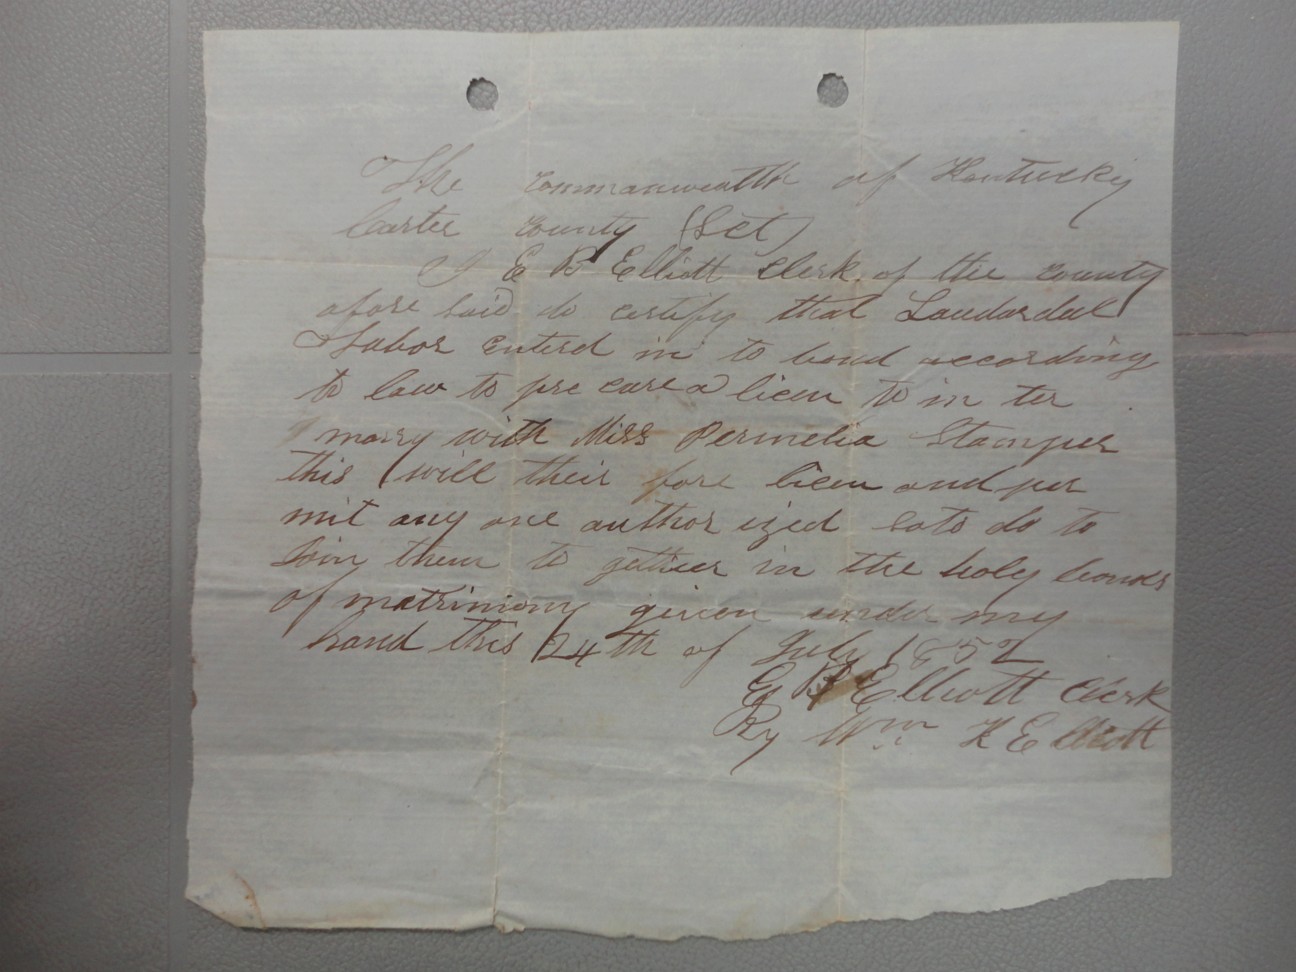 The commonwealth of Kentucky
Carter county (Sct)
I E B Elliott Clerk of the county
afore said do certify that Laudardal
Tabor enterd in to bond according
to law to pre care a licen to in ter
marry with Miss Permelia Stamper
this will their fore licen and per
mit any one author ized so to do to
Join them to gether in the holy bonds
of matrimony given under my
hand this 24th of July 1852
E B Elliott Clerk
By Wm K Elliott